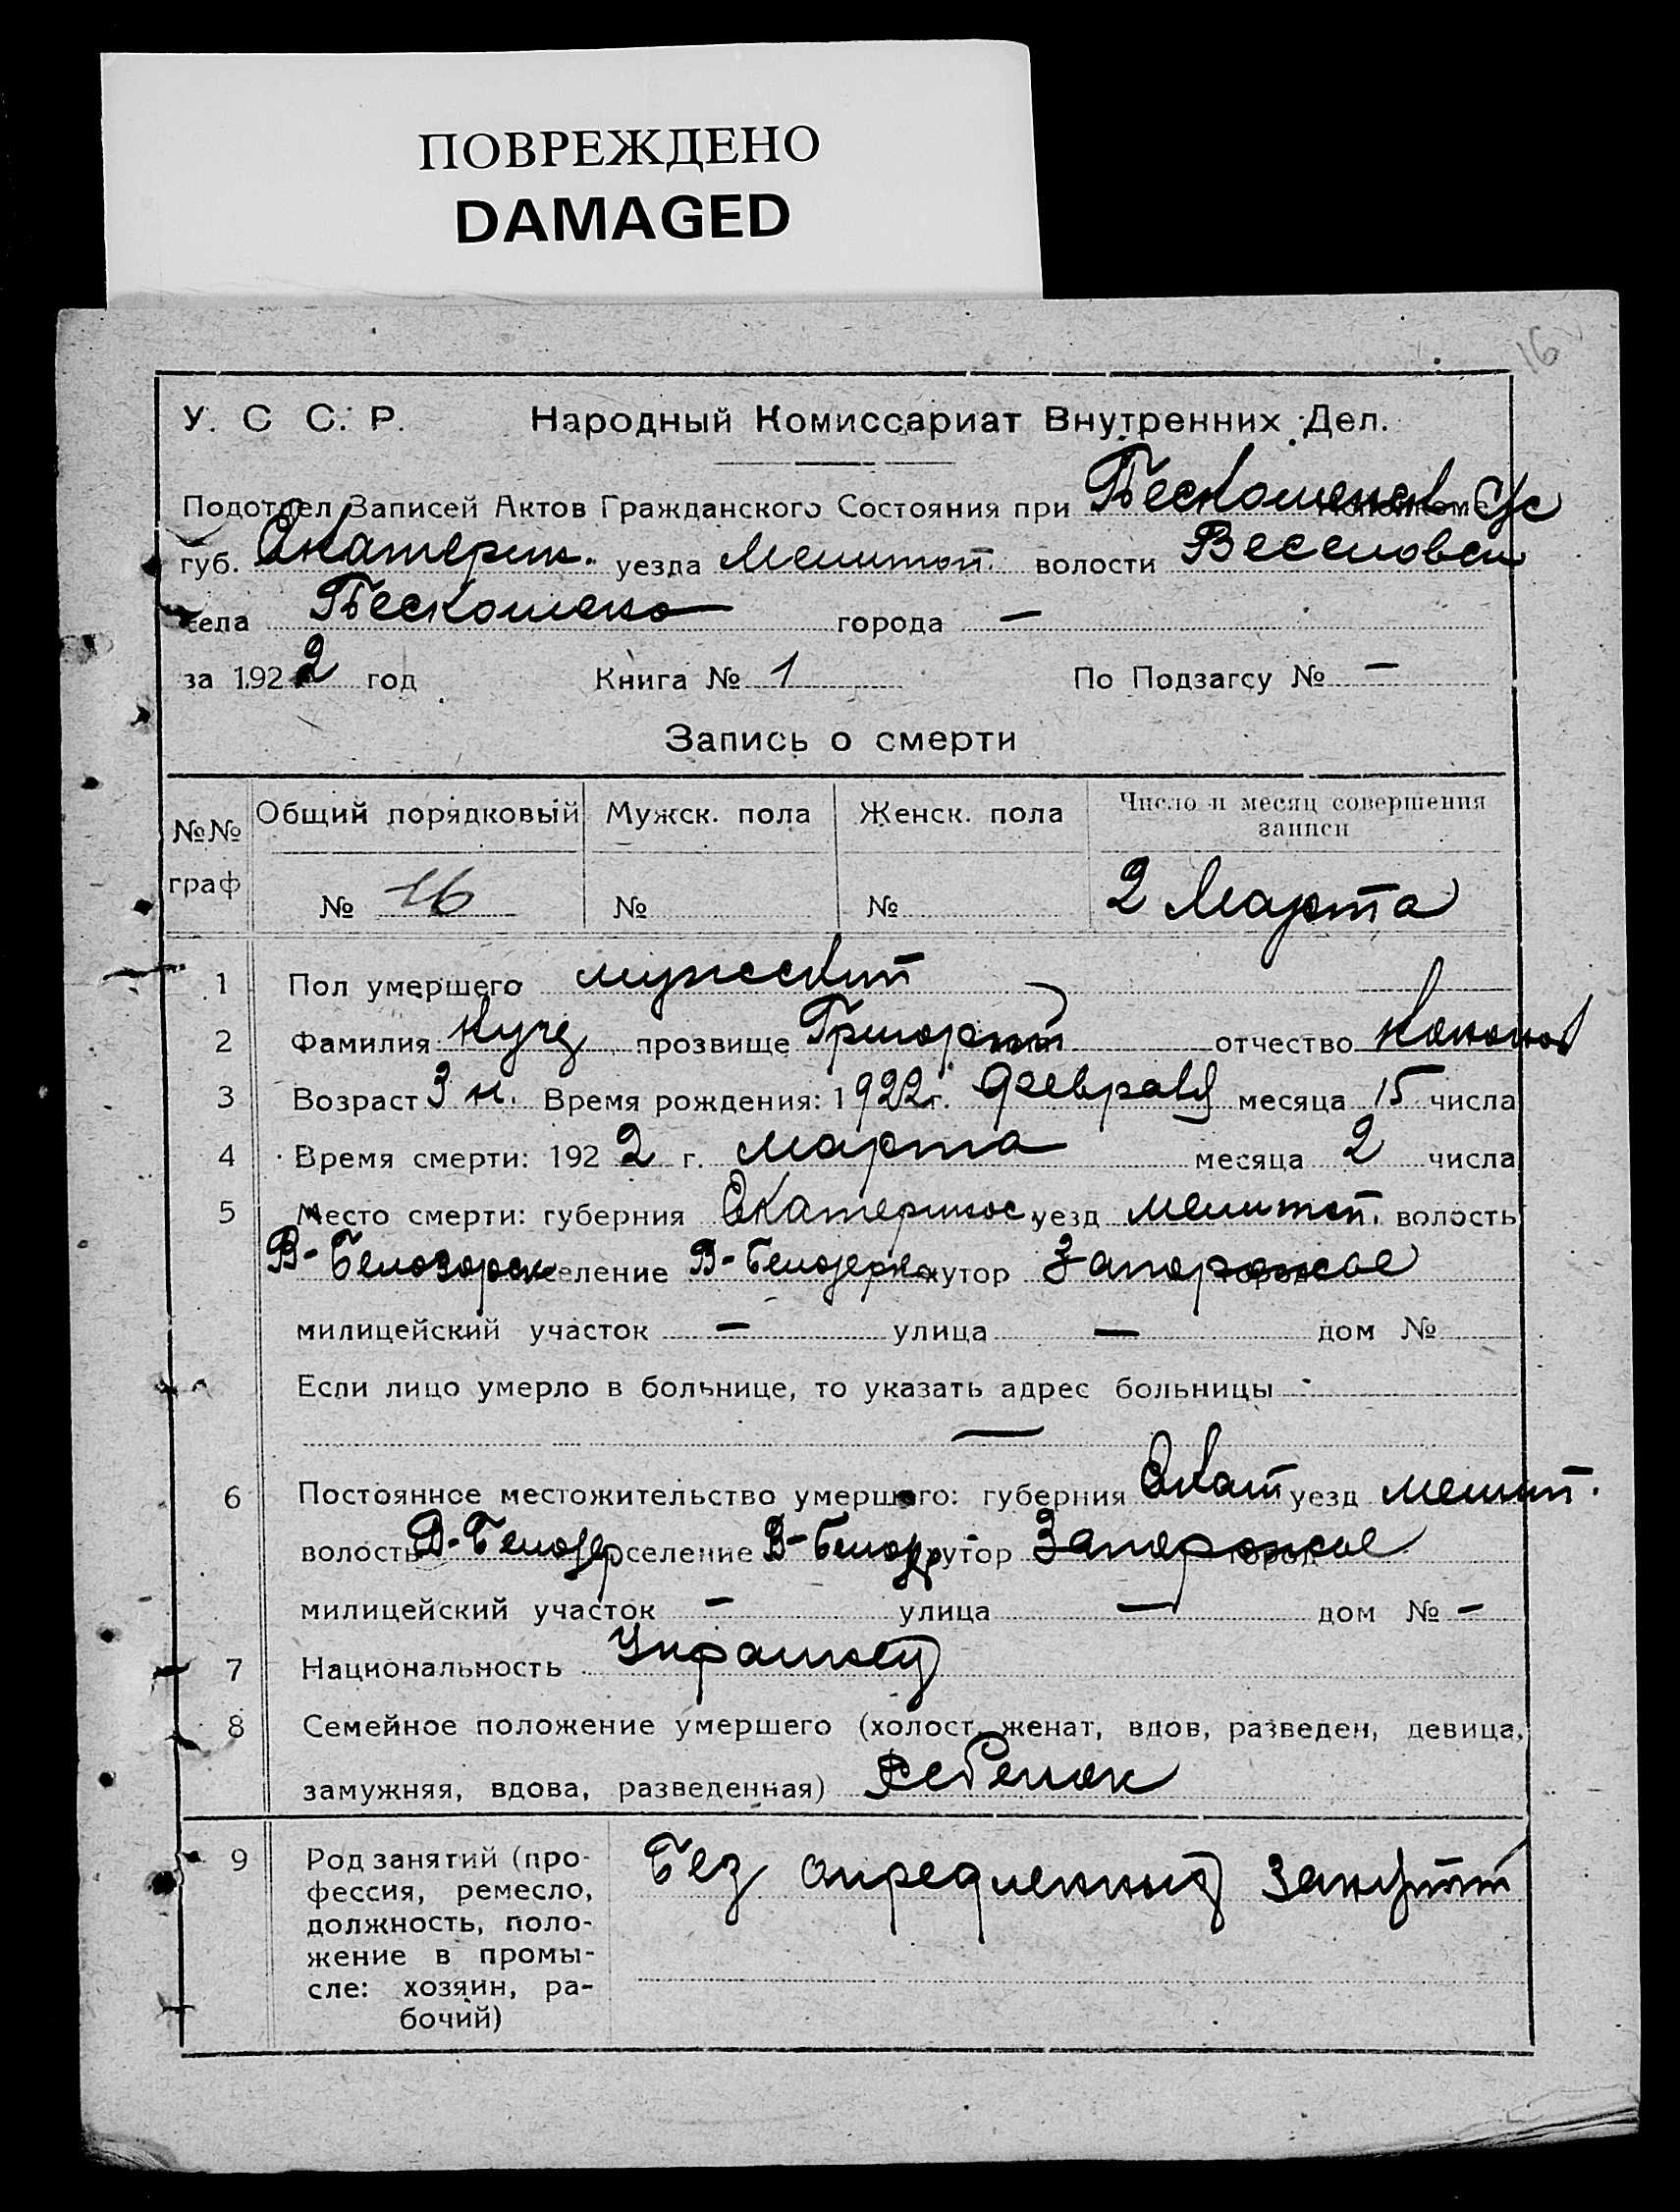 ПОВРЕЖДЕНО
DAMAGED
16
У. С С. Р. Народный Комиссариат Внутренних Дел.
Подотдел Записей Актов Гражданского Состояния при
губ. Екатерин. уезда Мелитоп. волости Веселовск
села города —
за 1922 год Книга № 1 По Подзагсу № —
Запись о смерти
№№ граф Общий порядковый Мужск. пола Женск. пола Число и месяц совершения записи
№ 16 № № 2 Марта
1 Пол умершего мужеский
2 Фамилия прозвище Григорий отчество Кононов
3 Возраст 3 н. Время рождения: 1922г. Февраля месяца 15 числа
4 Время смерти: 1922 г. марта месяца 2 числа
5 Место смерти: губерния Екатеринос уезд мелитоп. волость
В-Белозорск селение В-Белозерка хутор Запорожье
милицейский участок — улица — дом №
Если лицо умерло в больнице, то указать адрес больницы
—
6 Постоянное местожительство умершего: губерния Екат уезд мелит.
волость В-Белозер селение В-Белозер хутор Запорожье
милицейский участок — улица — дом № —
7 Национальность Украинец
8 Семейное положение умершего (холост, женат, вдов, разведен, девица,
замужняя, вдова, разведенная) Ребенок
9 Род занятий (про-
фессия, ремесло,
должность, поло-
жение в промы-
сле: хозяин, ра-
бочий)
Без определенных занятий